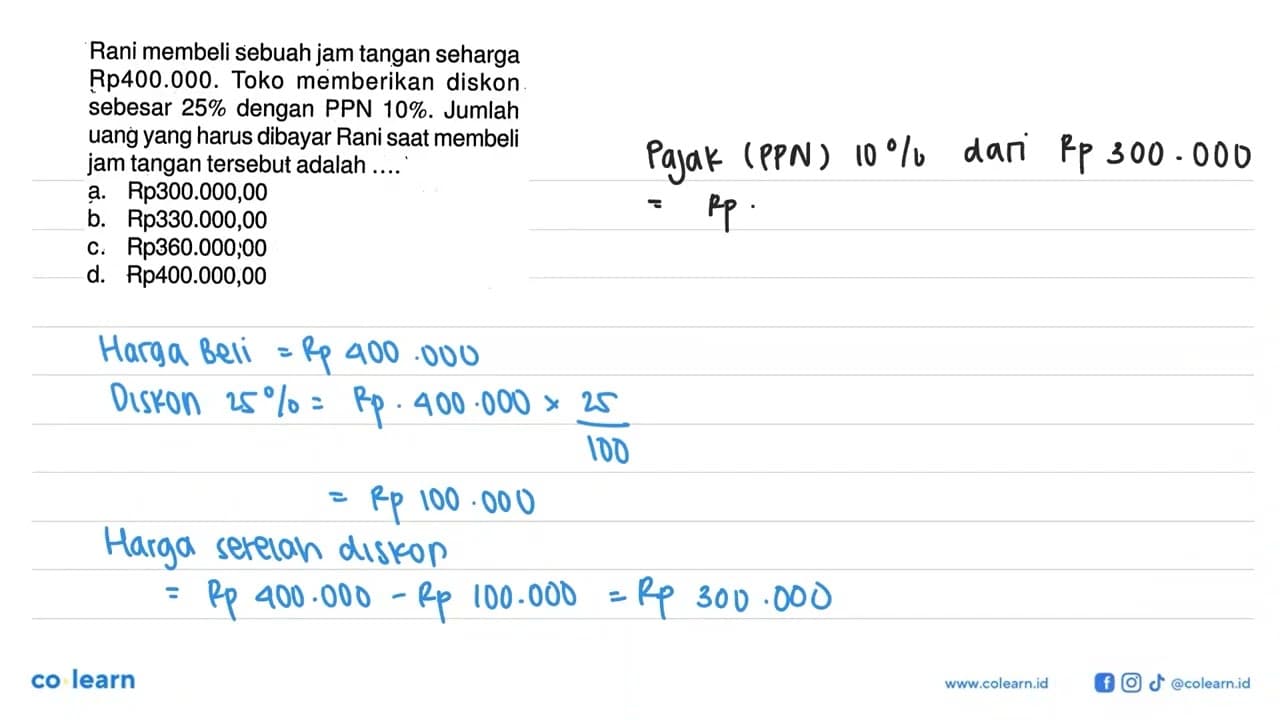 Rani membeli sebuah jam tangan seharga
Rp400.000. Toko memberikan diskon
sebesar 25% dengan PPN 10%. Jumlah
uang yang harus dibayar Rani saat membeli
jam tangan tersebut adalah ....
a. Rp300.000,00
b. Rp330.000,00
c. Rp360.000,00
d. Rp400.000,00
Pajak (PPN) 10% dari Rp 300.000
= Rp.
Harga Beli = Rp 400.000
Diskon 25% = Rp. 400.000 × 25
100
= Rp 100.000
Harga setelah diskon
= Rp 400.000 - Rp 100.000 = Rp 300.000
co learn
www.colearn.id
@colearn.id